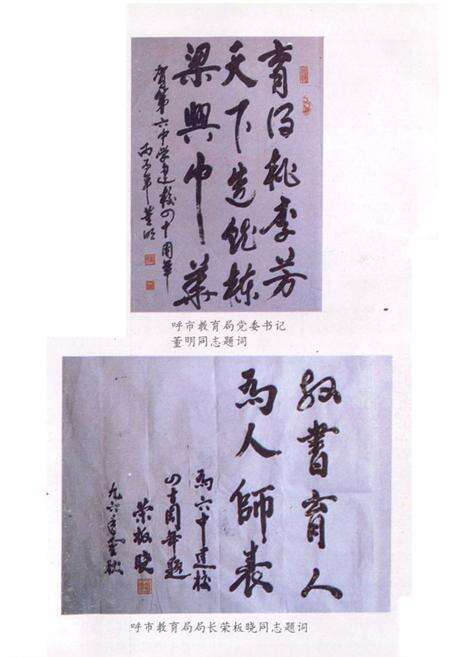 育得桃李芳
天下造就栋
梁兴中华
贺第六中学建校四十周年
丙子年 董明
呼市教育局党委书记
董明同志题词
教书育人
为人师表
为六中建校
四十周年题
荣板晓
九六年金秋
呼市教育局局长荣板晓同志题词